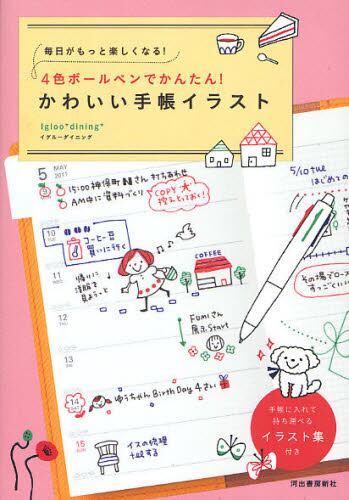 毎日がもっと楽しくなる!
4色ボールペンでかんたん!
かわいい手帳イラスト
Igloo*dining*
イグルーダイニング
5 MAY
2011
9
15:00 神保町Nさん打ち合わせ
AM中に資料づくり
COPY★
控えとっておく!
10
TUE
コーヒー豆
買いに行く
11
WED
帰りに
洋服を
見ようっと
COFFEE
12
THU
Fumiさん
展示Start
13
14
SAT
ゆうちゃん Birth Day 4さい
15
SUN
イスの修理
telする
5/10 tue
はじめての
その場でロース
すっごくいい
手帳に入れて
持ち運べる
イラスト集
付き
河出書房新社